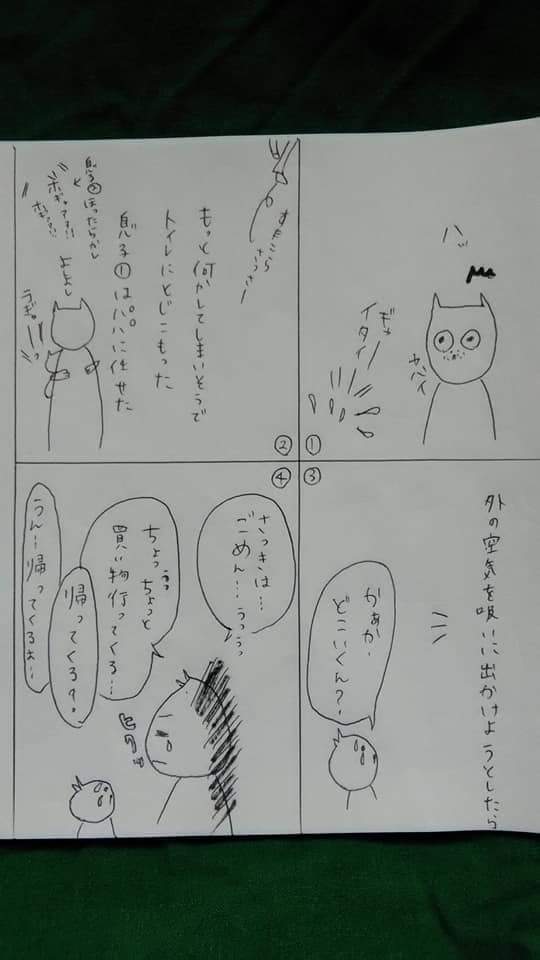 ①
ハッ
ヤバイ
ギャー
イタイ
②
すたこら
さっさー
もっと何かしてしまいそうで
トイレにとじこもった
息子①はパパに任せた
よしよし
うぎゃーっ
息子②ほったらかし
ホギャアア!!
③
外の空気を吸いに出かけようとしたら
かぁか、
どこいくん?
④
さっきは…
ごめん…うぅっっ
ちょっ…ちょっと
買い物行ってくる…
ヒクッ
帰ってくる?
うん…帰ってくるぉ…